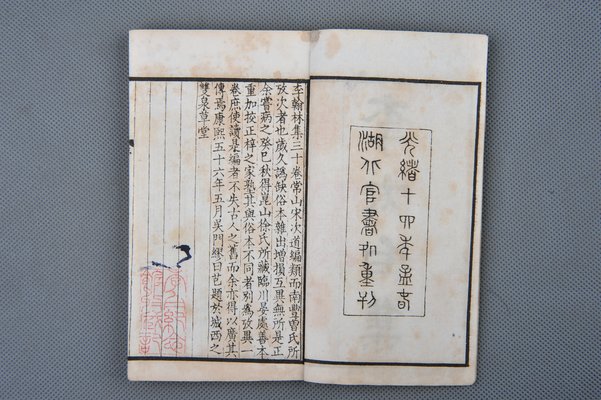 光緒十四年孟春
湖北官書処重刊
李翰林集三十卷常山宋次道編類而南豐曾氏所
攷次者也歲久譌缺俗本雜出增損互異無所是正
余嘗病之癸巳秋得崑山徐氏所藏臨川晏處善本
重加挍正梓之家塾其與俗本不同者别為攷異一
卷庶使讀是編者不失古人之舊而余亦得以廣其
傳焉康熙五十六年五月吳門繆曰芑題於城西之
雙泉草堂